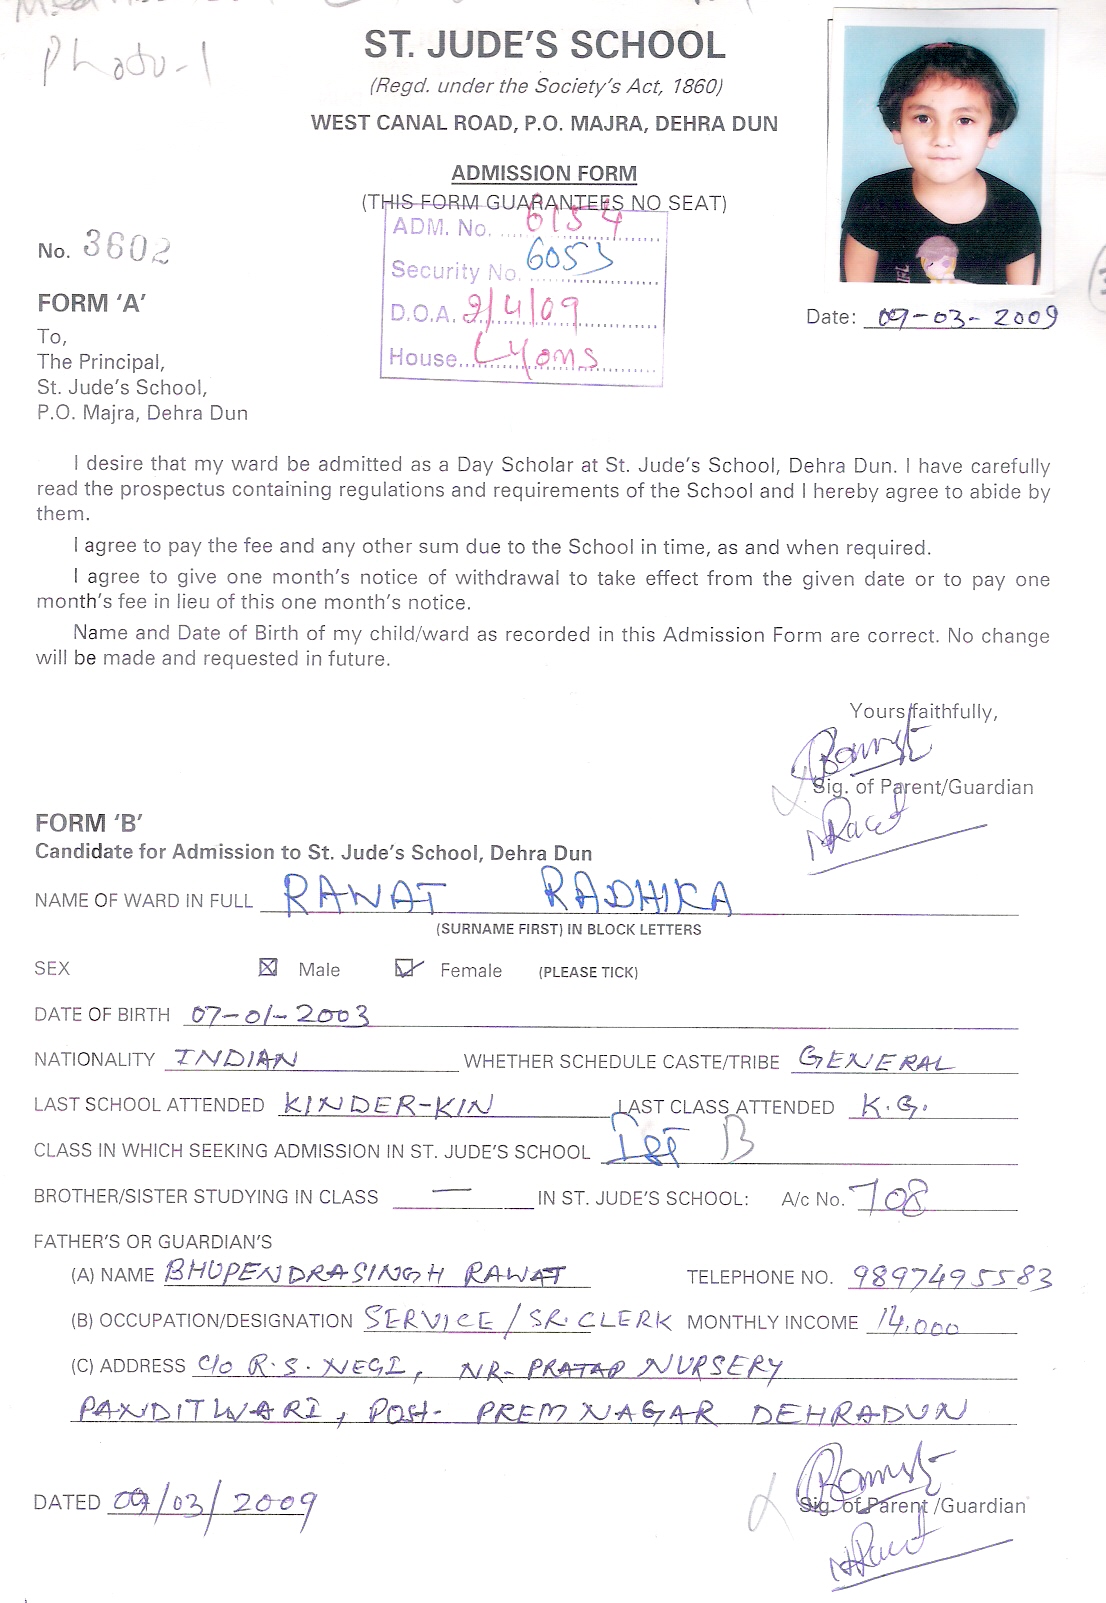 Photo-1
ST. JUDE'S SCHOOL
(Regd. under the Society's Act, 1860)
WEST CANAL ROAD, P.O. MAJRA, DEHRA DUN
ADMISSION FORM
(THIS FORM GUARANTEES NO SEAT)
ADM. No. 6154
No. 3602
Security No. 6053
FORM 'A'
D.O.A. 2/4/09
Date: 09-03-2009
To,
House Lyons
The Principal,
St. Jude's School,
P.O. Majra, Dehra Dun
I desire that my ward be admitted as a Day Scholar at St. Jude's School, Dehra Dun. I have carefully
read the prospectus containing regulations and requirements of the School and I hereby agree to abide by
them.
I agree to pay the fee and any other sum due to the School in time, as and when required.
I agree to give one month's notice of withdrawal to take effect from the given date or to pay one
month's fee in lieu of this one month's notice.
Name and Date of Birth of my child/ward as recorded in this Admission Form are correct. No change
will be made and requested in future.
Yours faithfully,
Sig. of Parent/Guardian
FORM 'B'
Candidate for Admission to St. Jude's School, Dehra Dun
NAME OF WARD IN FULL RAWAT RADHIKA
(SURNAME FIRST) IN BLOCK LETTERS
SEX Male Female (PLEASE TICK)
DATE OF BIRTH 07-01-2003
NATIONALITY INDIAN WHETHER SCHEDULE CASTE/TRIBE GENERAL
LAST SCHOOL ATTENDED KINDER-KIN LAST CLASS ATTENDED K.G.
CLASS IN WHICH SEEKING ADMISSION IN ST. JUDE'S SCHOOL Ist B
BROTHER/SISTER STUDYING IN CLASS — IN ST. JUDE'S SCHOOL: A/c No. 708
FATHER'S OR GUARDIAN'S
(A) NAME BHUPENDRASINGH RAWAT TELEPHONE NO. 9897495583
(B) OCCUPATION/DESIGNATION SERVICE / SR. CLERK MONTHLY INCOME 14,000
(C) ADDRESS C/o R.S. NEGI, NR- PRATAP NURSERY
PANDITWARI, POST- PREM NAGAR DEHRADUN
DATED 09/03/2009
Sig. of Parent /Guardian